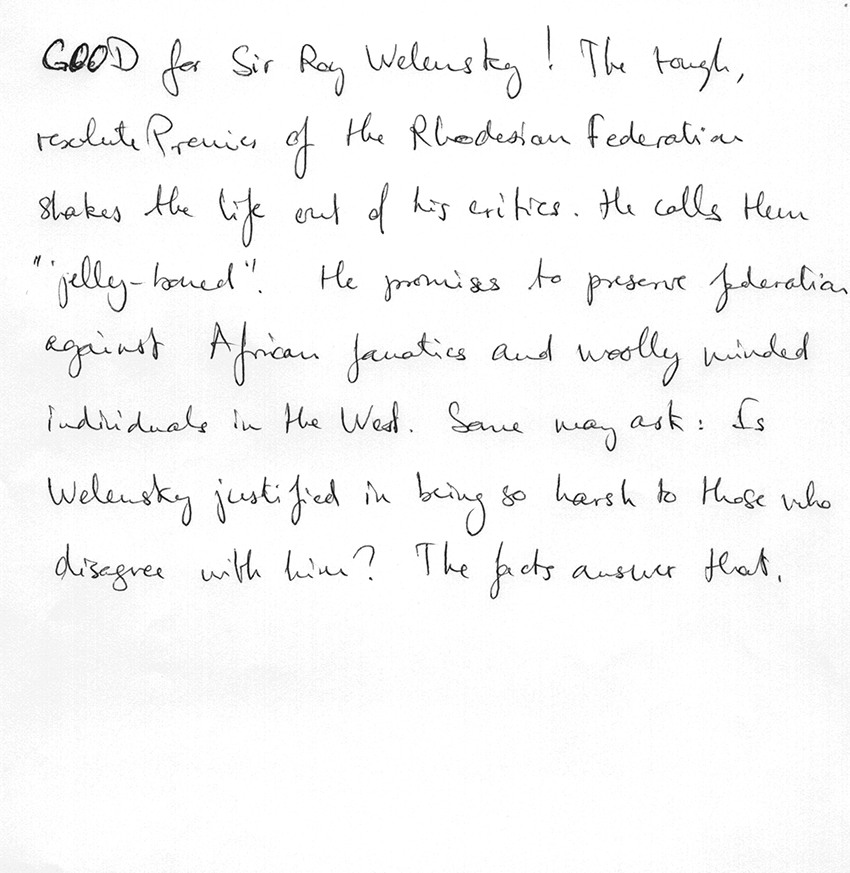 GOOD for Sir Roy Welensky! The tough,
resolute Premier of the Rhodesian Federation
shakes the life out of his critics. He calls them
"jelly-boned". He promises to preserve federation
against African fanatics and woolly minded
individuals in the West. Some may ask: Is
Welensky justified in being so harsh to those who
disagree with him? The facts answer that.